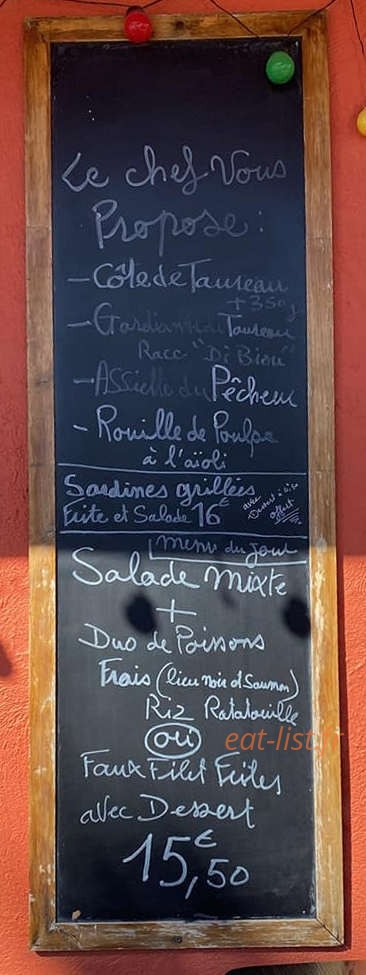 Le chef Vous
Propose :
- Côte de Taureau
+ 350g
- Gardianne de Taureau
Race "Di Biou"
- Assiette du Pêcheur
- Rouille de Poulpe
à l'aïoli
Sardines grillées
Frite et Salade 16€
avec
offert
menu du jour
Salade mixte
+
Duo de Poissons
Frais (lieu noir et Saumon)
Riz Ratatouille
ou
eat-list.fr
Faux Filet Frites
avec Dessert
15,50€